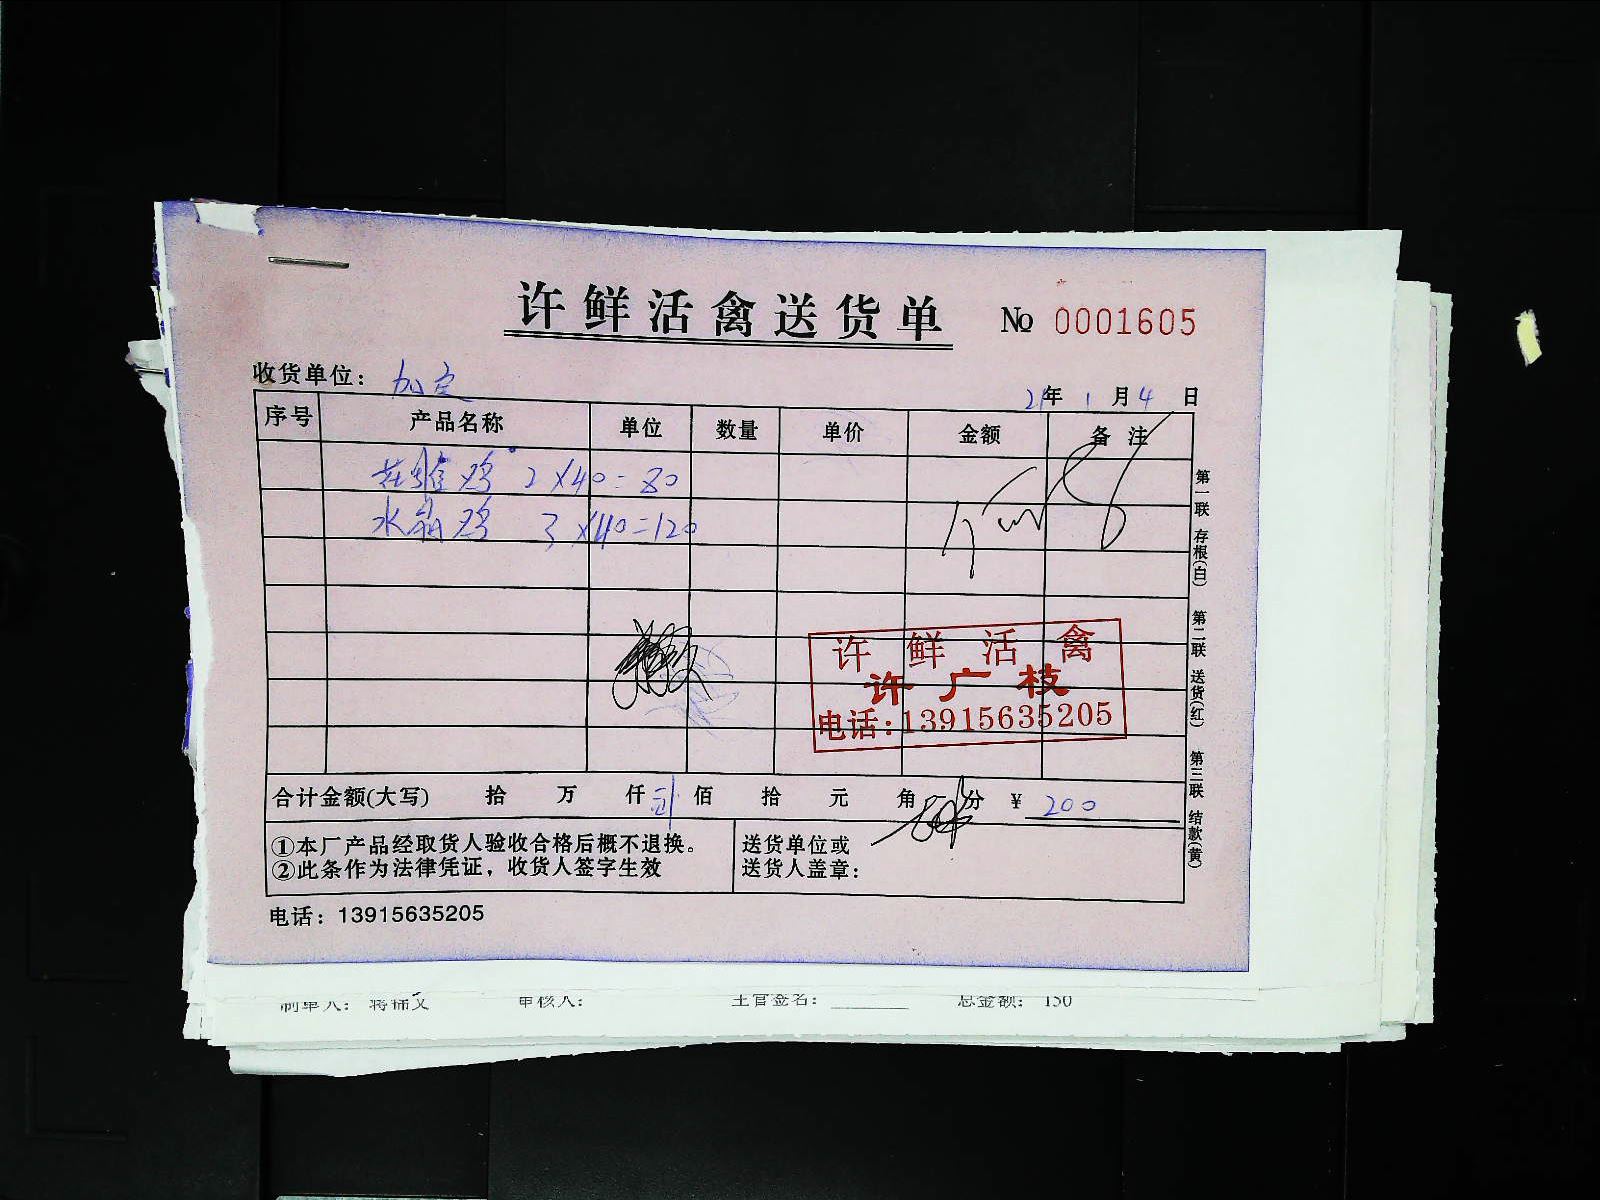 许鲜活禽送货单 № 0001605
收货单位：加定 21年1月4日
序号 产品名称 单位 数量 单价 金额 备注
花雕鸡 2×40=80
水晶鸡 3×40=120
第一联 存根(白) 第二联 送货(红) 第三联 结款(黄)
许鲜活禽
许广枝
电话:13915635205
合计金额(大写) 拾 万 仟 佰 拾 元 角 分 ¥ 200
①本厂产品经取货人验收合格后概不退换。
②此条作为法律凭证，收货人签字生效
送货单位或
送货人盖章：
电话：13915635205
制单人： 审核人： 主管签名： 总金额： 150